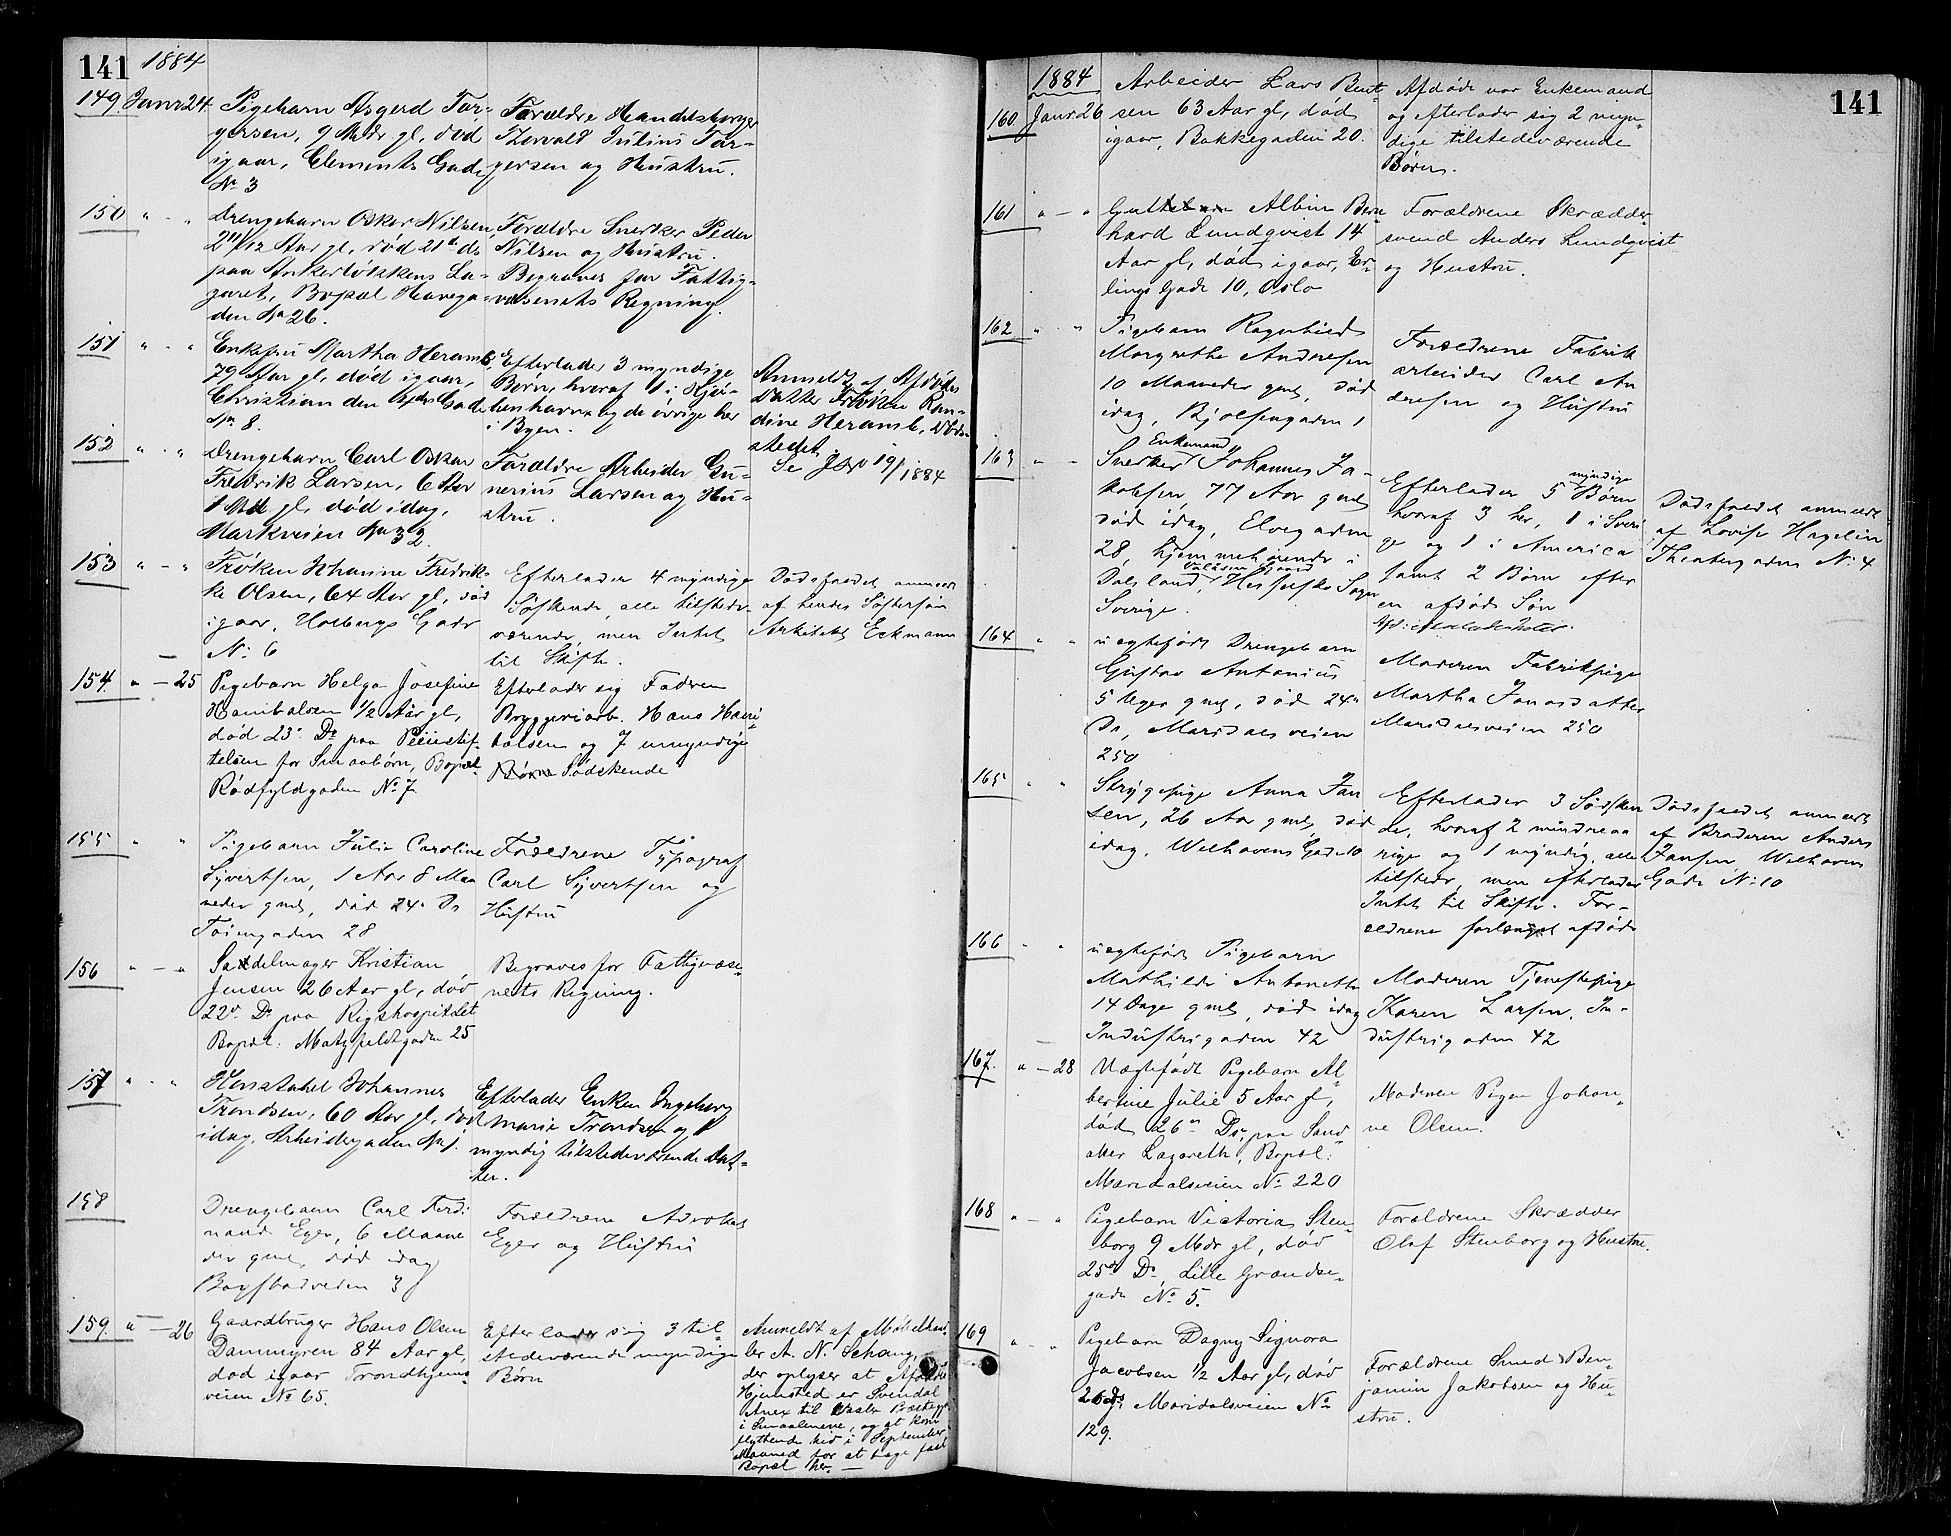 141 1884
149. Januar 24. Pigebarn Asgerd Tor-
gersen, 9 Mdr gl, død
igaar, Clements Gade
No 3
Forældre Handelsborger
Thorvald Julius Tor-
gersen og Hustru.
150 " - " Drengebarn Oskar Nilsen
2 11/12 Aar gl, død 21de ds
paa Ankerløkkens La-
zaret, Bopæl Havega-
den No 26.
Forældre Snerker Peder
Nilsen og Hustru.
Begraves for Fattig-
væsenets Regning.
151 " - " Enkefru Martha Heramb,
79 Aar gl, død igaar,
Christian den 4des Gade
No 8.
Efterlader 3 myndige
Børn, hvoraf 1 i Kjø-
benhavn og de øvrige her
i Byen.
Anmeldt af Afdødes
Datter Frøken Ran-
dine Heramb, Døds-
stedet.
Se 19/1 1884
152 " - " Drengebarn Carl Oskar
Fredrik Larsen, 6 Aar
1 Md gl, død idag,
Markveien No 32.
Forældre Arbeider Gu-
nerius Larsen og Hu-
stru.
153 " - " Frøken Johanne Fredrik-
ke Olsen, 64 Aar gl, død
igaar, Holbergs Gade
No 6
Efterlader 4 myndige
Søskende, alle tilstede-
værende, men Intet
til Skifte.
Dødsfaldet anmeldt
af hendes Søstersøn
Arkitekt Eckmann
154. " - 25 Pigebarn Helga Josefine
Hanibalsen 1/2 Aar gl,
død 23de Ds paa Pleiestif-
telsen for Smaabørn, Bopæl
Rødfyldgaden No 7
Efterlader sig Fadren
Bryggeriarb. Hans Hani-
balsen og 7 umyndige
Børn Sødskende
155 " " Pigebarn Julie Caroline
Syvertsen, 1 Aar 8 Maa
neder gml, død 24de Ds
Tøiengaden 28
Forældrene Typograf
Carl Syvertsen og
Hustru
156 " - " Sadelmager Kristian
Jensen 26 Aar gl, død
22de Ds paa Rigshospitalet
Bopæl: Motzfeldtgaden 25
Begraves for Fattigvæse-
nets Regning.
157 " - " Konstabel Johannes
Trondsen, 60 Aar gl, død
idag, Arbeidergaden No 1.
Efterlader Enken Ingeborg
Marie Trondsen og 1
myndig tilstedeværende Dat-
ter.
158 Drengebarn Carl Ferdi
nand Eger, 6 Maane
der gml, død idag
Bogstadveien 3
Forældrene Advokat
Eger og Hustru
159. " - 26 Gaardbruger Hans Olsen
Dammyren 84 Aar gl,
død igaar Trondhjems-
veien No 65.
Efterlader sig 3 til-
stedeværende myndige
Børn
Anmeldt af Møbelhand-
ler A. N. Schang,
der oplyser at Afdødes
Hjemsted er Svendal
Anex til Vaaler Præstegj.
i Smaalenene, og at kom
flyttende hid i September
Maaned for at tage fast
Bopæl her. —
1884 141
160 Januar 26 Arbeider Lars Bent-
sen 63 Aar gl, død
igaar, Bakkegaden 20.
Afdøde var Enkemand
og efterlader sig 2 myn-
dige tilstedeværende
Børn.
161 " - " Gut Albin Bern
hard Lundqvist 14
Aar gl, død igaar, Er-
lings Gade 10, Oslo
Forældrene Skrædder-
svend Anders Lundqvist
og Hustru.
162 " - " Pigebarn Ragnhild
Margrethe Andresen
10 Maaneder gml, død
idag, Bjølsengaden 1
Forældrene Fabrik
arbeider Carl An
dresen og Hustru
163 " - Snerker Enkemand Johannes Ja-
kobsen, 77 Aar gml
død idag, Elvegaden
28, hjemmehørende i
Dalsland, Hesselskog Sogn
Sverige.
Efterlader 5 myndige Børn
hvoraf 3 her, 1 i Sveri
ge og 1 i America
samt 2 Børn efter
en afdød Søn
Dødsfaldet anmeldt
af Lovise Hagelin
Theatergaden No 4
164 " " uægtefødt Drengebarn
Gustav Antonius
5 Uger gml, død 24de
Ds, Maridalsveien
250
Moderen Fabrikspige
Martha Jonasdatter
Maridalsveien 250
165 " " Strygepige Anna Jan
sen, 26 Aar gml, død
idag, Welhavens Gade 10
Efterlader 3 Sødsken
de, hvoraf 2 mindreaa
rige og 1 myndig, alle
tilstede, men efterlader
Intet til Skifte. For-
ældrene forlængst afdøde
Dødsfaldet anmeldt
af Broderen Anders
Jansen, Welhavens
Gade No 10
166 " " uægtefødt Pigebarn
Mathilde Antonette
14 Dage gml, død idag
Industrigaden 42
Moderen Tjenestepige
Karen Larsen, In-
dustrigaden 42
167. " - 28 Uægtefødt Pigebarn Al-
bertine Julie 5 Aar gl,
død 26de Ds, paa Sand-
aker Lazareth, Bopæl:
Maridalsveien No 220
Moderen Pigen Johan-
ne Olsen.
168 " - " Pigebarn Victoria Sten-
borg 9 Mdr gl, død
25de Ds, Lille Grændse-
gade No 5.
Forældrene Skrædder
Olof Stenborg og Hustru.
169 " - " Pigebarn Dagny Signora
Jacobsen 1/2 Aar gl, død
26 Ds. Maridalsveien No
129.
Forældrene Smed Ben-
jamin Jakobsen og Hu-
stru.